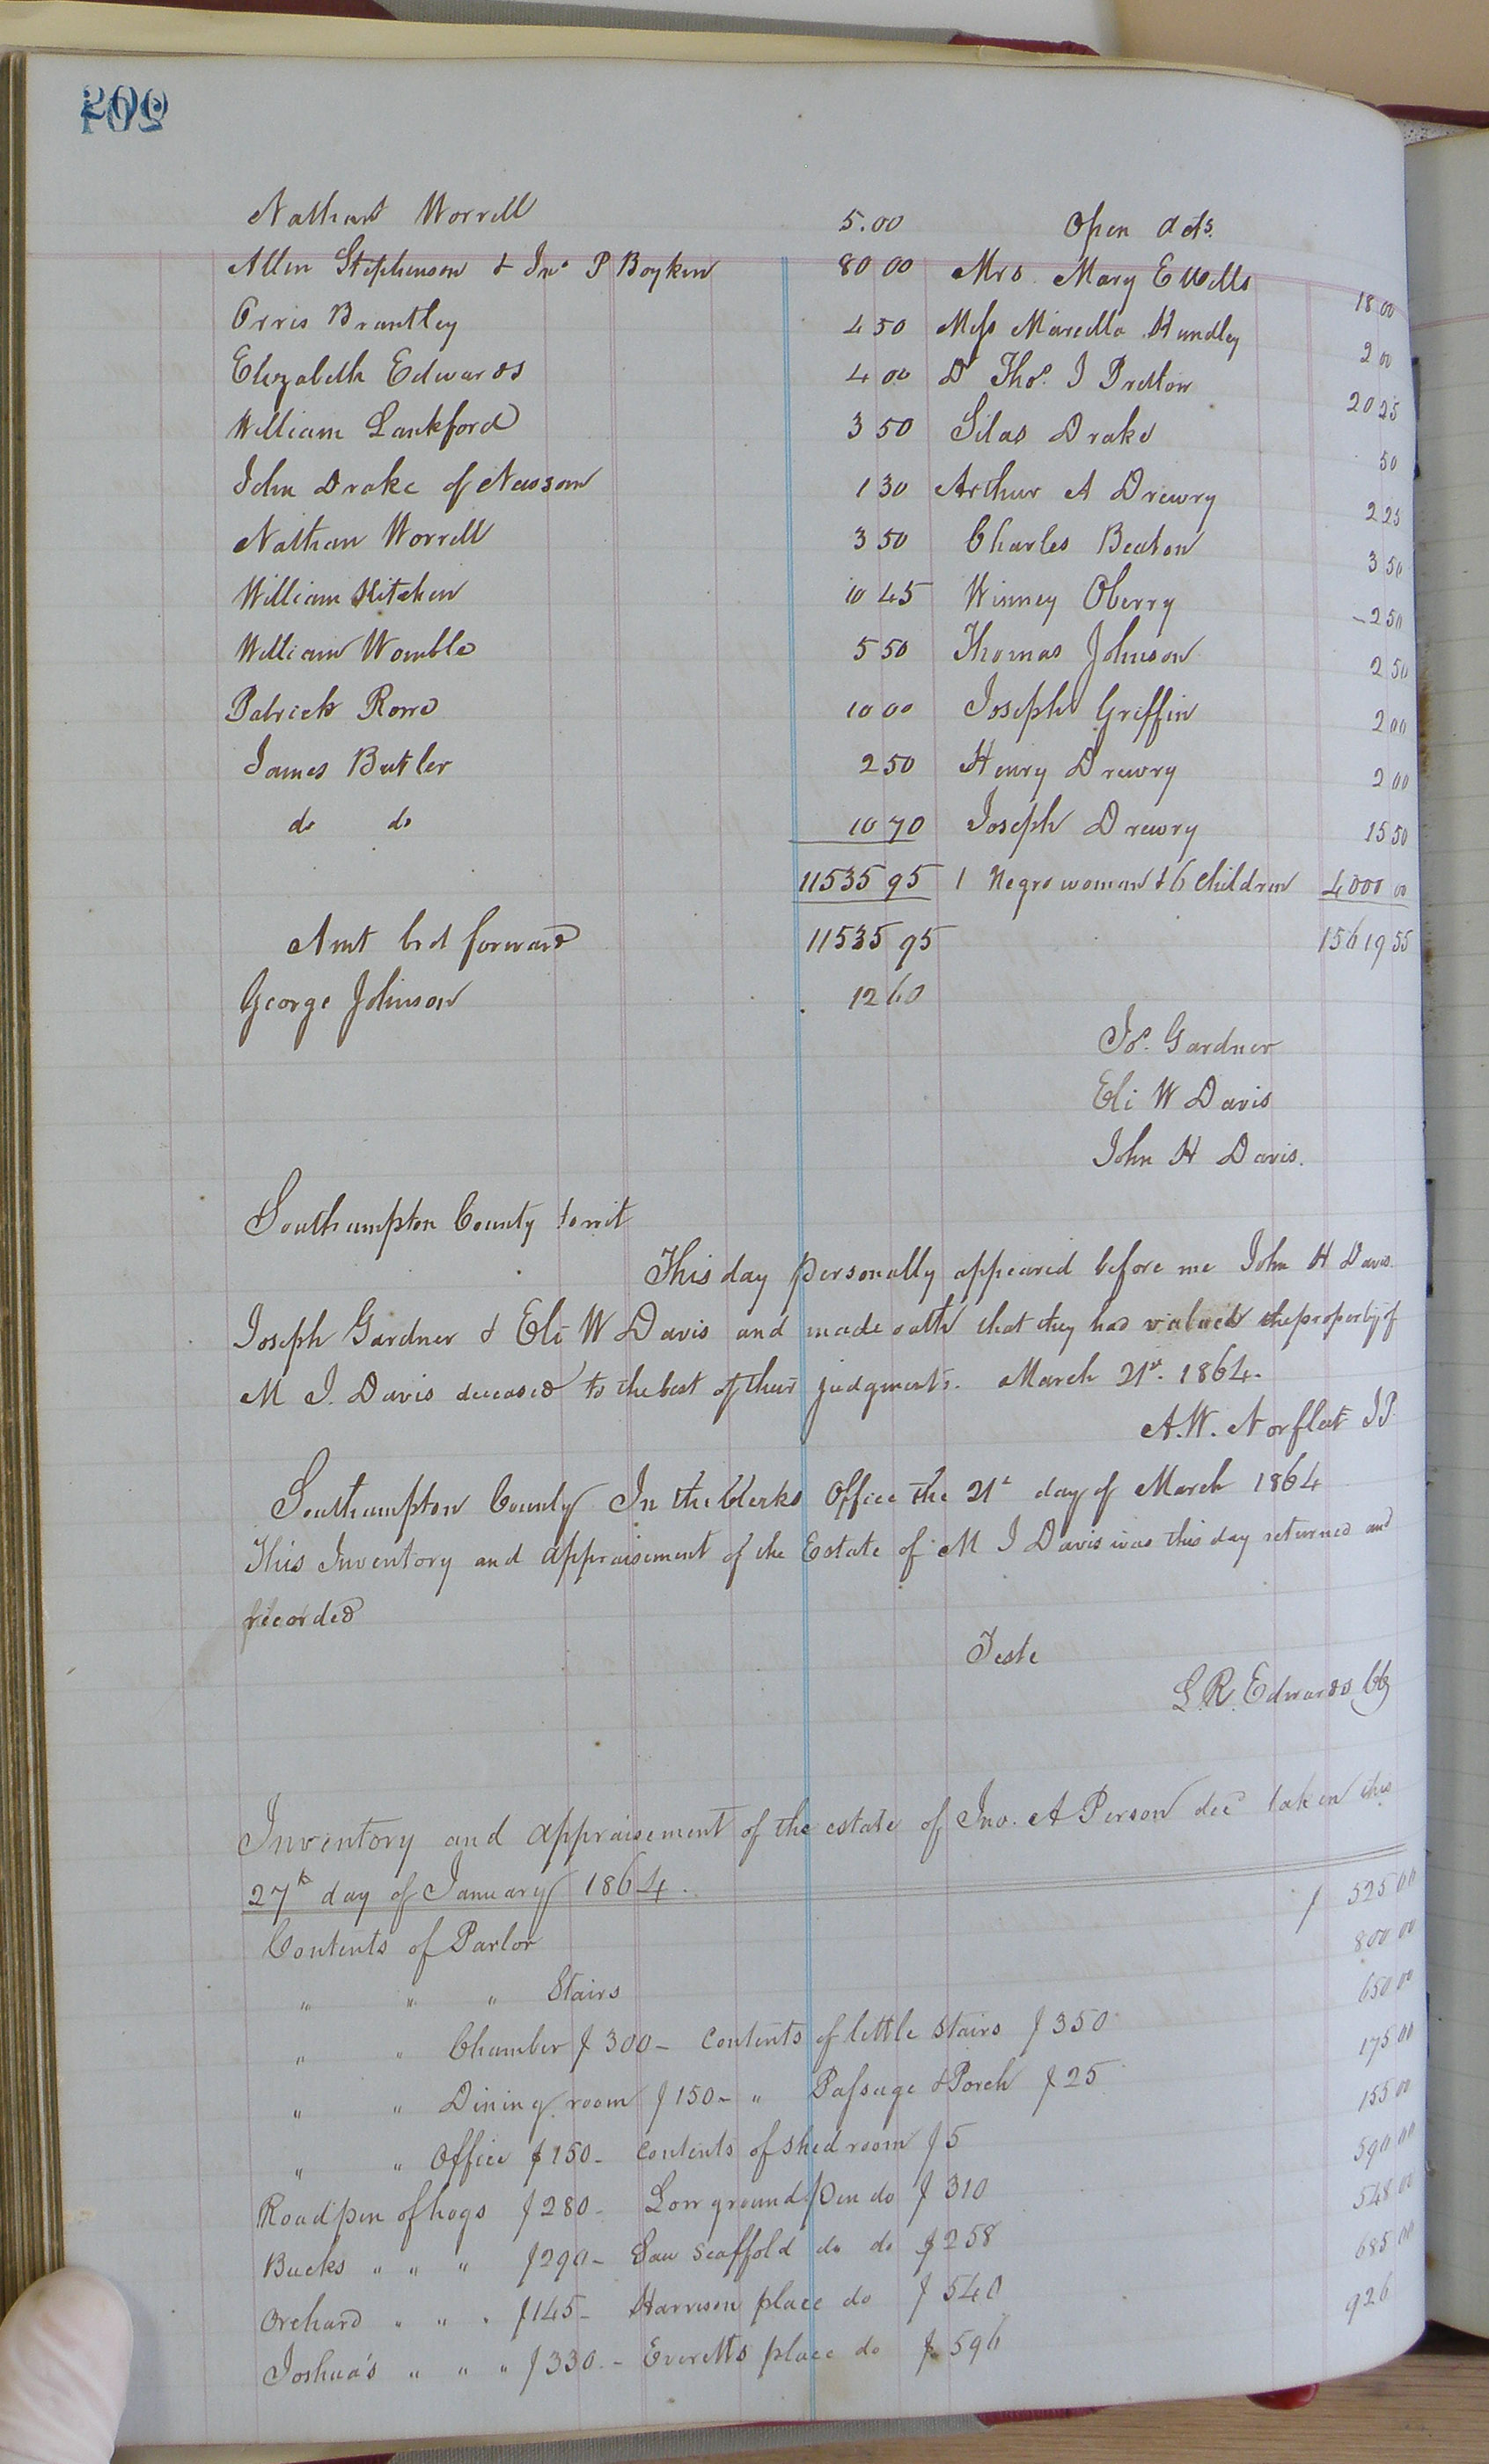 Nathan Worrell 5.00 Open Acts.
Allen Stephenson & Jno P Boykin 80 00 Mrs. Mary E Wills 18 00
Orris Brantley 4 50 Miss Marcella Handley 2 00
Elizabeth Edwards 4 00 Dr Thos. J Pretlow 20 25
William Lankford 3 50 Silas Drake 50
John Drake of Newsom 1 30 Arthur A Drewry 2 25
Nathan Worrell 3 50 Charles Beaton 3 50
William Kitchen 10 45 Winney Oberry 2 50
William Womble 5 50 Thomas Johnson 2 50
Patrick Rowe 10 00 Joseph Griffin 2 00
James Butler 2 50 Henry Drewry 2 00
do do 10 70 Joseph Drewry 15 50
11535 95 1 Negro woman & 6 children 4000 00
Amt brd forward 11535 95 15619 55
George Johnson 12 60
Jos. Gardner
Eli W Davis
John H Davis.
Southampton County towit
This day personally appeared before me John H Davis
Joseph Gardner & Eli W Davis and made oath that they had valued the property of
M J. Davis deceased to the best of their judgments. March 21st. 1864.
A.W. Norfleet JP.
Southampton County In the Clerks Office the 21st day of March 1864
This Inventory and appraisement of the Estate of M J Davis was this day returned and
recorded
Teste
L.R. Edwards Clk
Inventory and appraisement of the estate of Jno. A Person decd taken this
27th day of January 1864.
Contents of Parlor $ 525 00
" " " Stairs 800 00
" " Chamber $ 300 - Contents of little Stairs $ 350 650 00
" " Dining room $ 150 - " Passage & Porch $ 25 175 00
" " Office $ 150 - contents of shed room $ 5 155 00
Road pen of hogs $ 280 - Low ground pen do $ 310 590 00
Bucks " " " $ 290 - Saw scaffold do do $ 258 548 00
Orchard " " " $ 145 - Harrison place do $ 540 685 00
Joshua's " " " $ 330 - Everetts place do $ 596 926